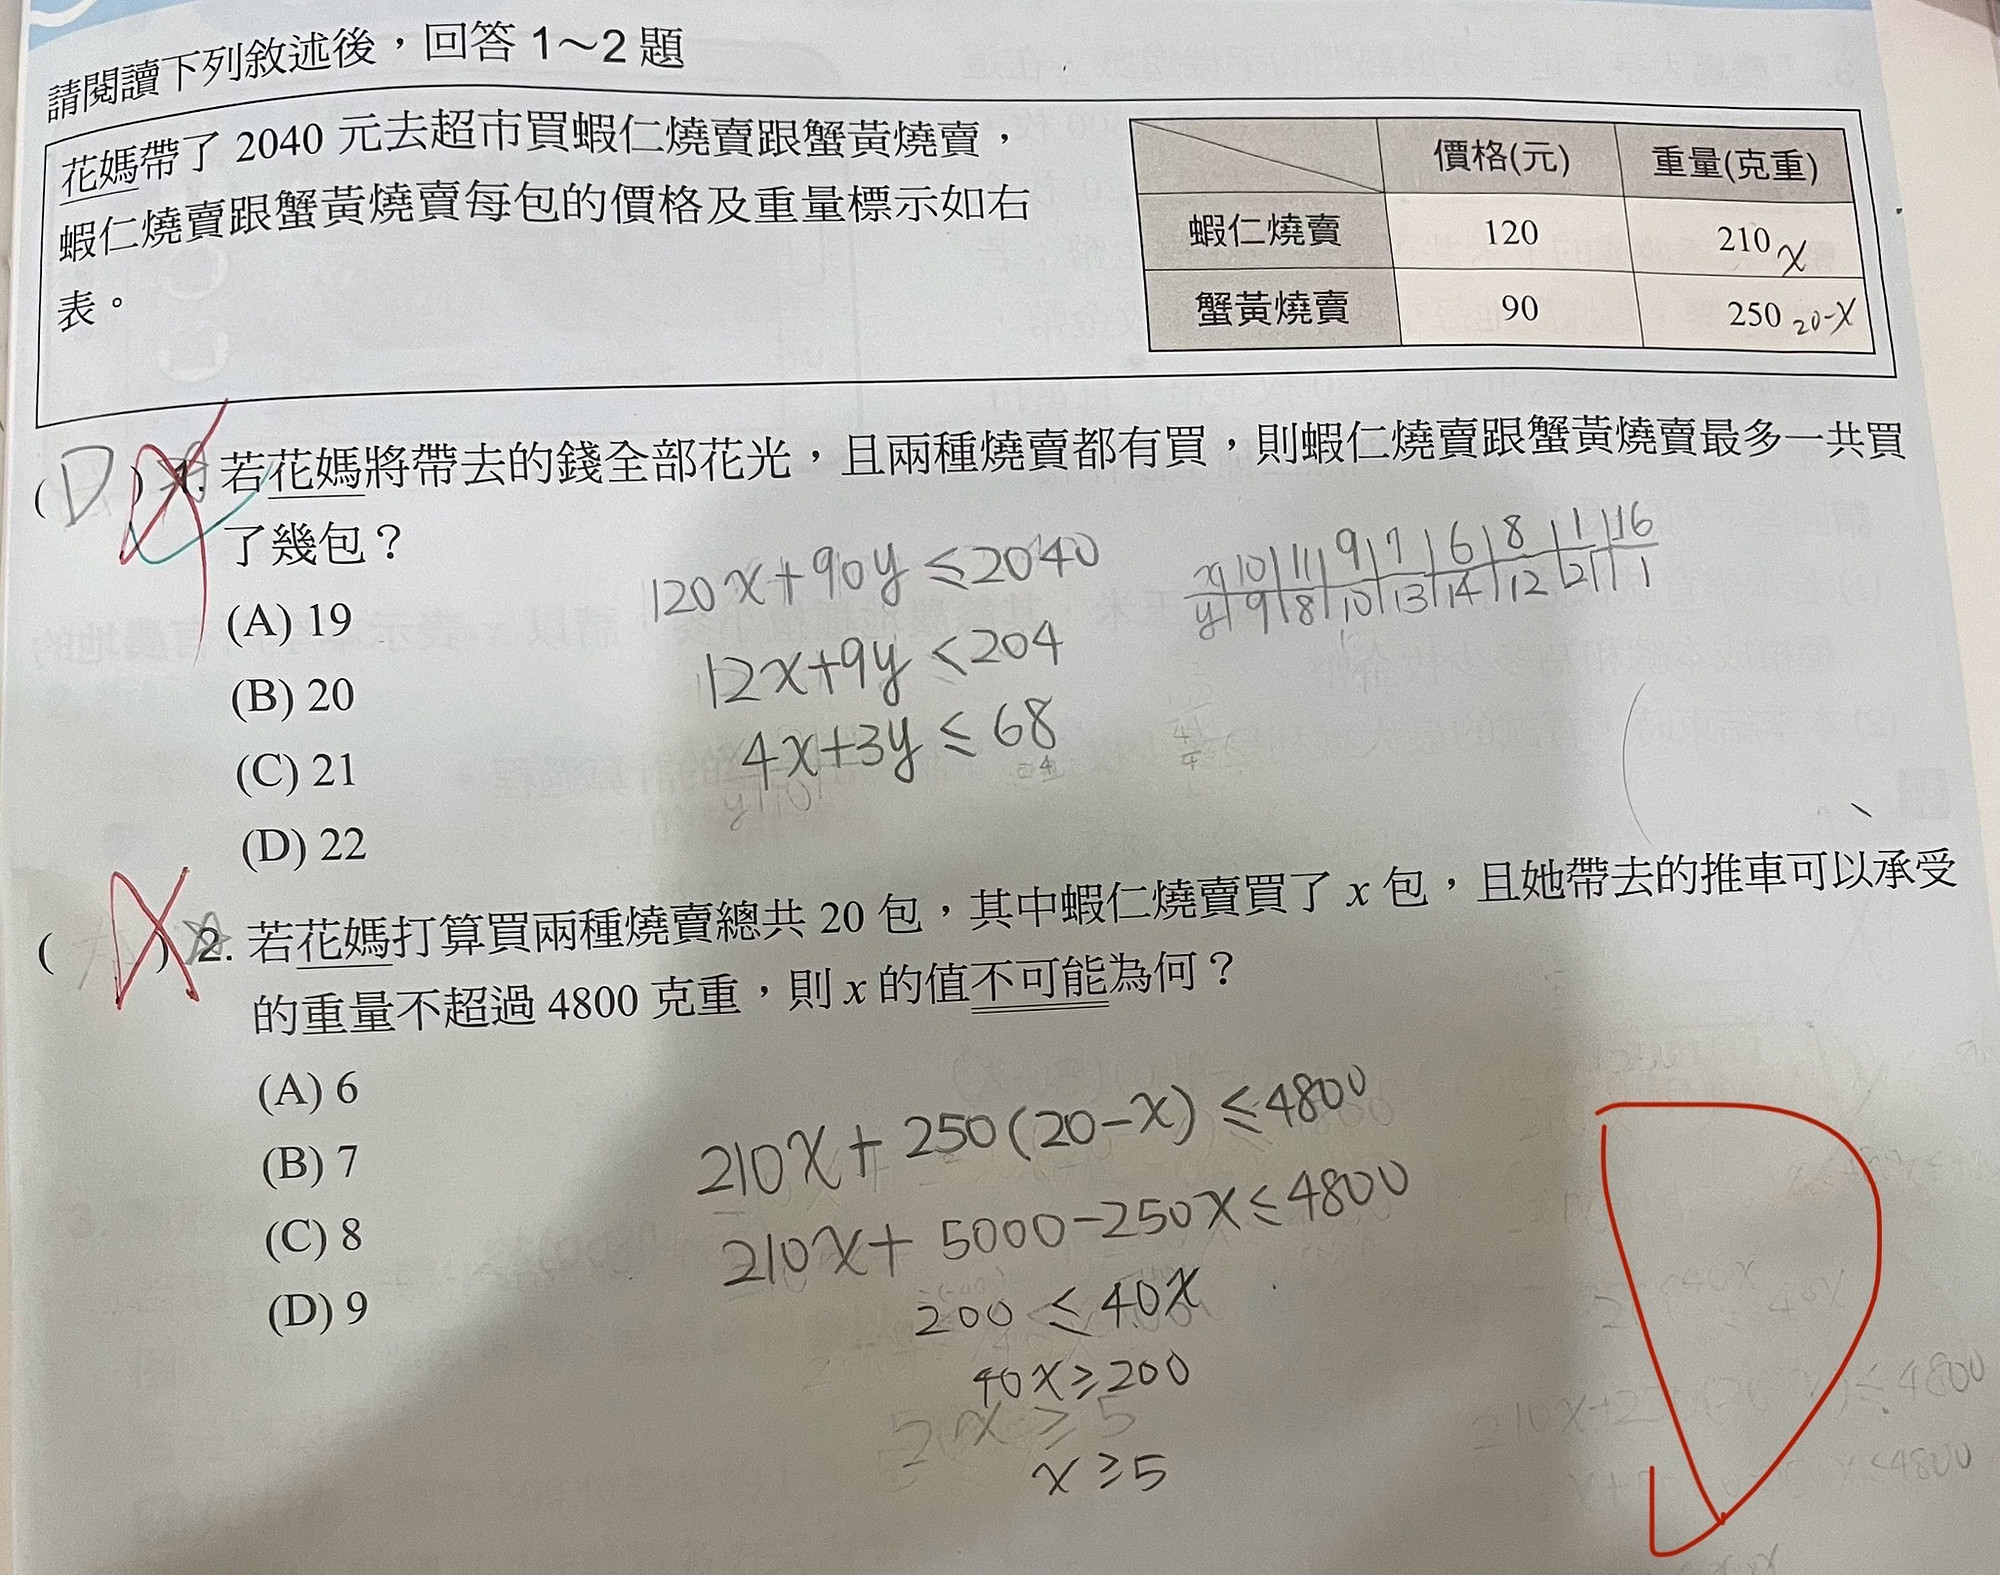 請閱讀下列敘述後，回答 1～2 題
花媽帶了 2040 元去超市買蝦仁燒賣跟蟹黃燒賣，
蝦仁燒賣跟蟹黃燒賣每包的價格及重量標示如右
表。
價格(元) 重量(克重)
蝦仁燒賣 120 210 x
蟹黃燒賣 90 250 20-x
( D ) 1. 若花媽將帶去的錢全部花光，且兩種燒賣都有買，則蝦仁燒賣跟蟹黃燒賣最多一共買
了幾包？
(A) 19
(B) 20
(C) 21
(D) 22
120x+90y≤2040
12x+9y≤204
4x+3y≤68
x 10 11 9 7 6 8 1 16
y 9 8 10 13 14 12 21 1
( ) 2. 若花媽打算買兩種燒賣總共 20 包，其中蝦仁燒賣買了 x 包，且她帶去的推車可以承受
的重量不超過 4800 克重，則 x 的值不可能為何？
(A) 6
(B) 7
(C) 8
(D) 9
210x+250(20-x)≤4800
210x+5000-250x≤4800
200≤40x
40x≥200
x≥5